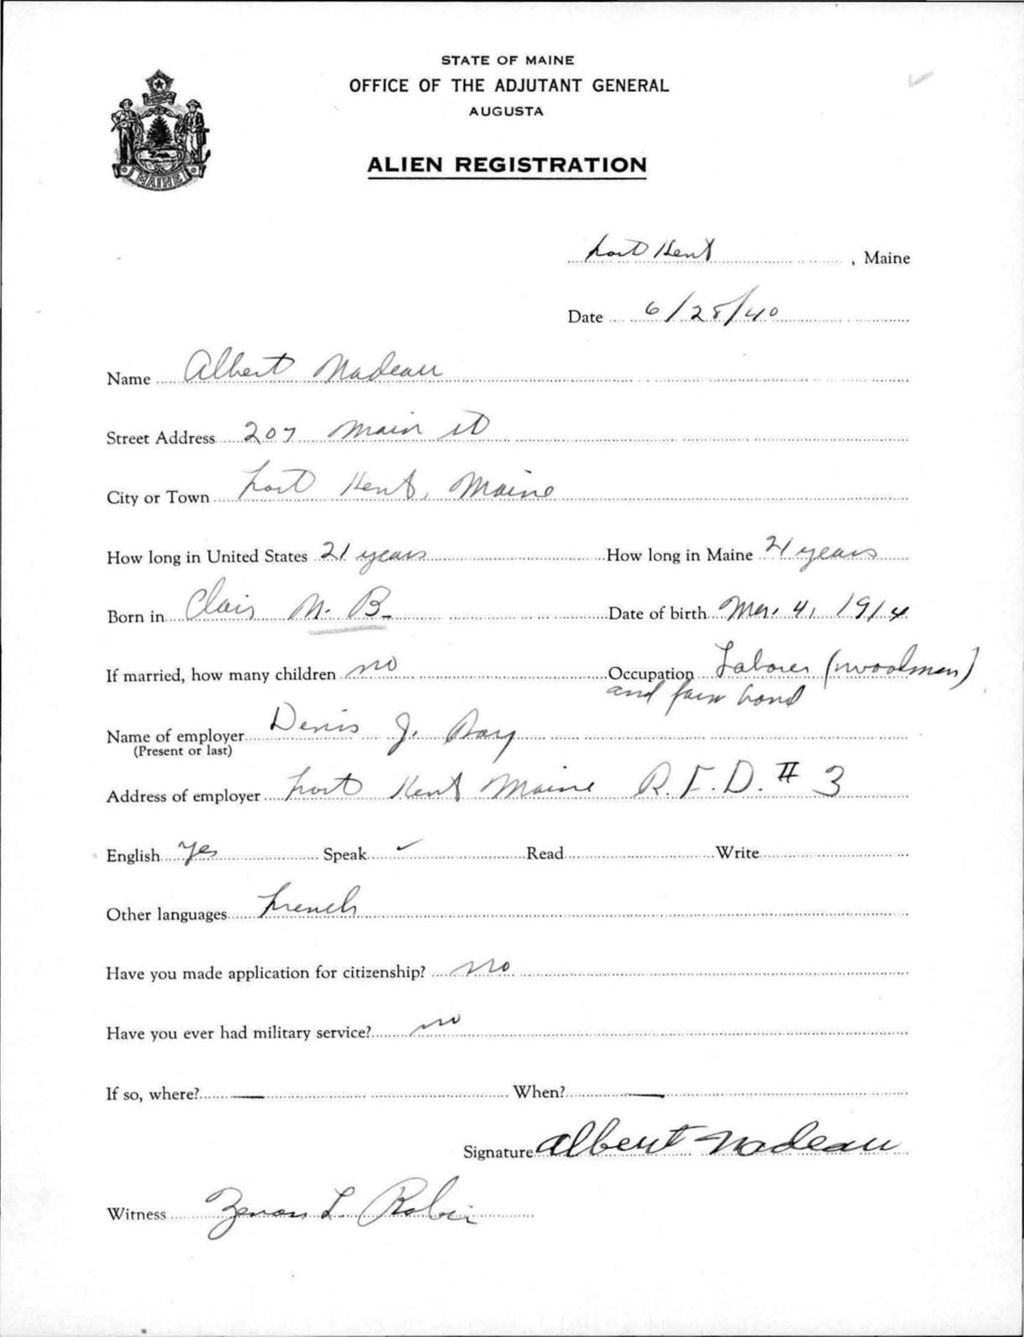 STATE OF MAINE
OFFICE OF THE ADJUTANT GENERAL
AUGUSTA
ALIEN REGISTRATION
MAINE
Fort Kent, Maine
Date 6/28/40
Name Albert Nadeau
Street Address 207 Main St
City or Town Fort Kent, Maine
How long in United States 21 years How long in Maine 21 years
Born in Clair N. B. Date of birth Mar. 4, 1914
If married, how many children no Occupation Laborer (woodman)
and farm hand
Name of employer Denis J.
(Present or last)
Address of employer Fort Kent Maine R.F.D. # 3
English Yes Speak ✓ Read Write
Other languages French
Have you made application for citizenship? no
Have you ever had military service? no
If so, where? — When? —
Signature Albert Nadeau
Witness L.